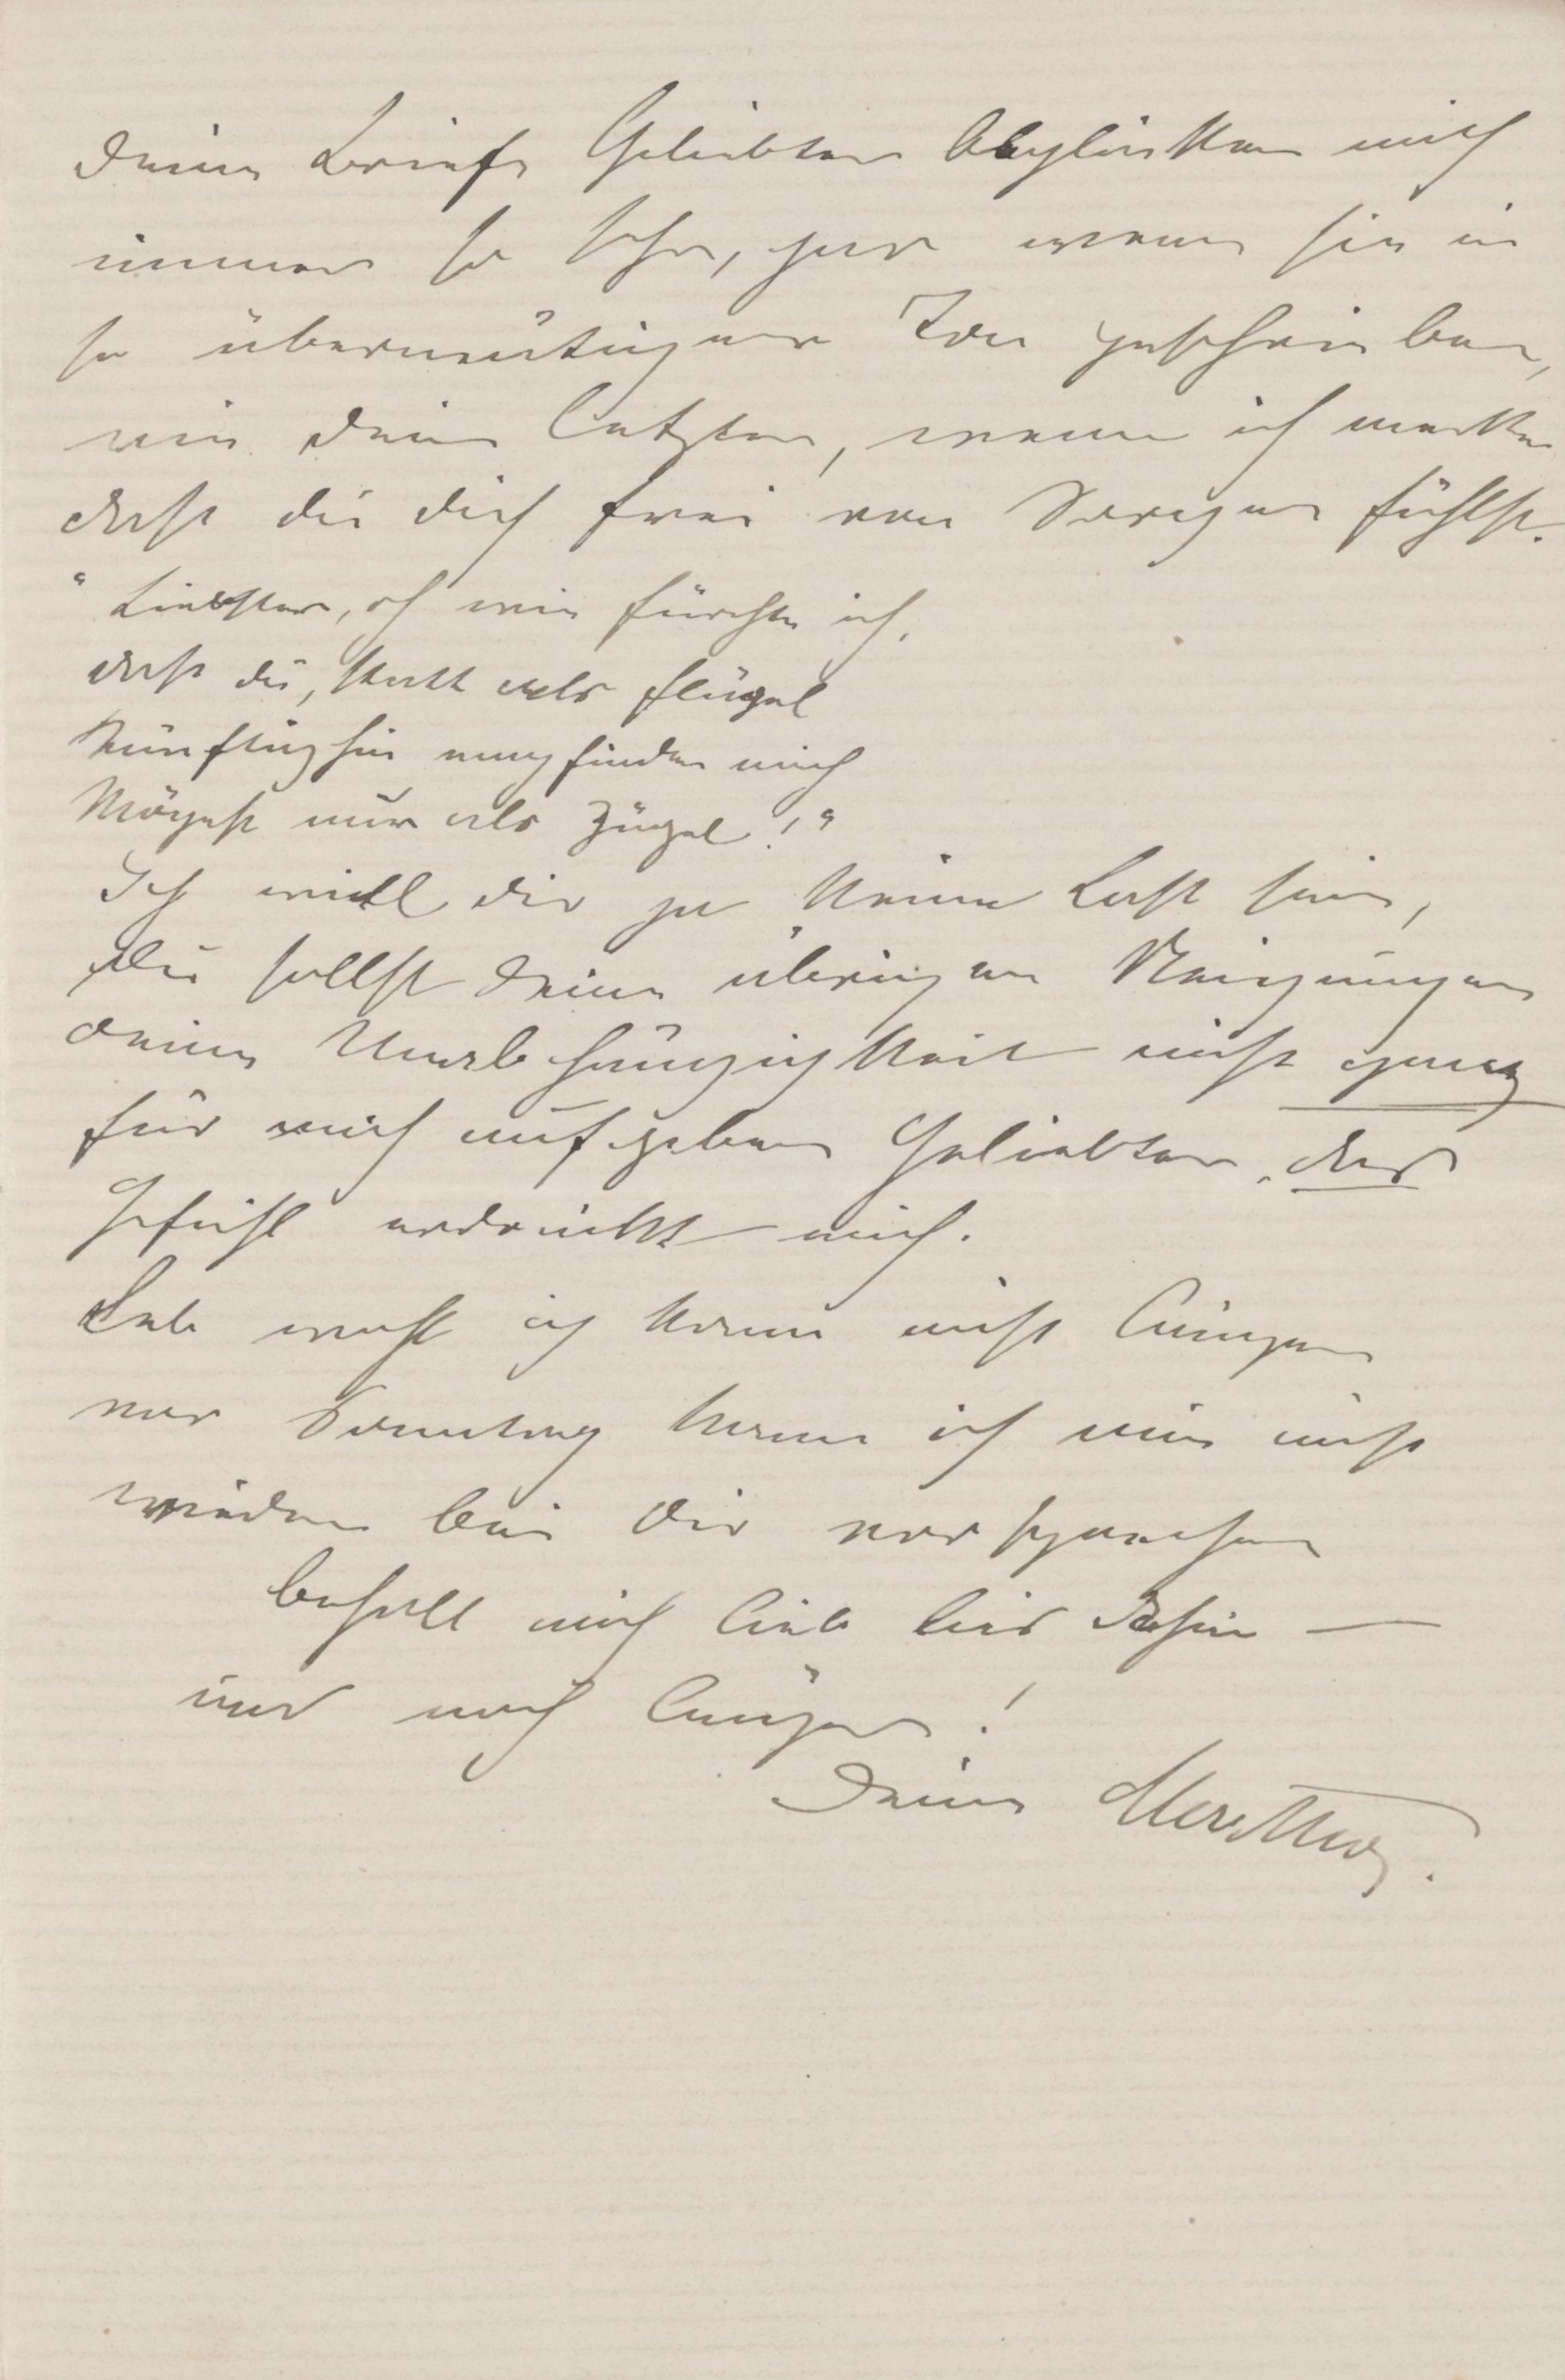 Deine Briefe Geliebter beglücken mich
immer so sehr, gar wenn sie in
so übermütigem Ton geschrieben,
wie dein letzter, wenn ich merke
dass du dich frei von Sorgen fühlst.
"Liebster, oh wie fürchte ich,
dass du, statt als Flügel
künftighin empfinden mich
Mögest nur als Zügel!"
Ich will dir ja keine Last sein,
du sollst deine übrigen Neigungen
deine Unabhängigkeit nicht ganz
für mich aufgeben Geliebter, das
Gefühl erdrückt mich.
Leb wohl ich kann nicht länger
vor Sonntag kann ich nun nicht
wieder bei dir vorsprechen
behalt mich lieb bis dahin —
und noch länger!
Deine